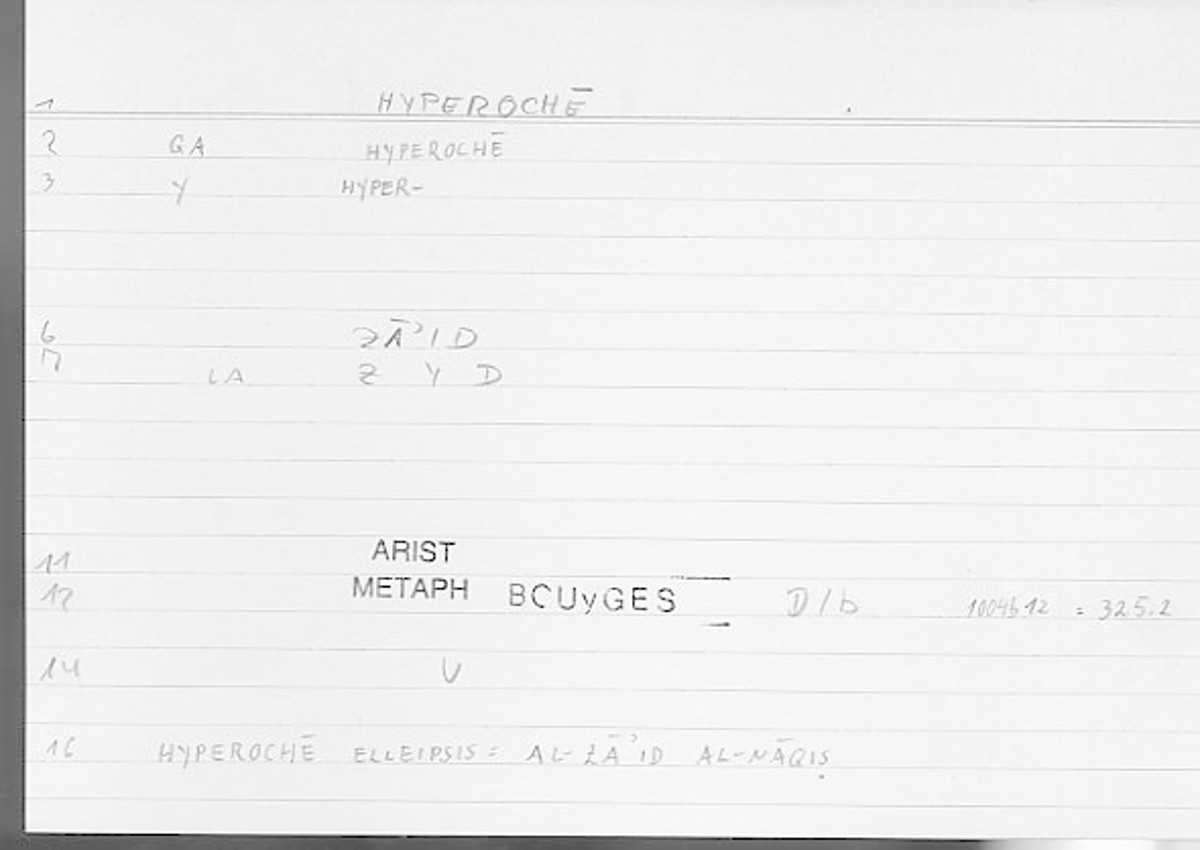 1 HYPEROCHĒ
2 GA HYPEROCHĒ
3 Y HYPER-
6 ZĀʾID
7 LA Z Y D
11 ARIST
12 METAPH BOUyGES D/b 1004b12 = 325.2
14 V
16 HYPEROCHĒ ELLEIPSIS = AL-ZĀʾID AL-NĀQIṢ